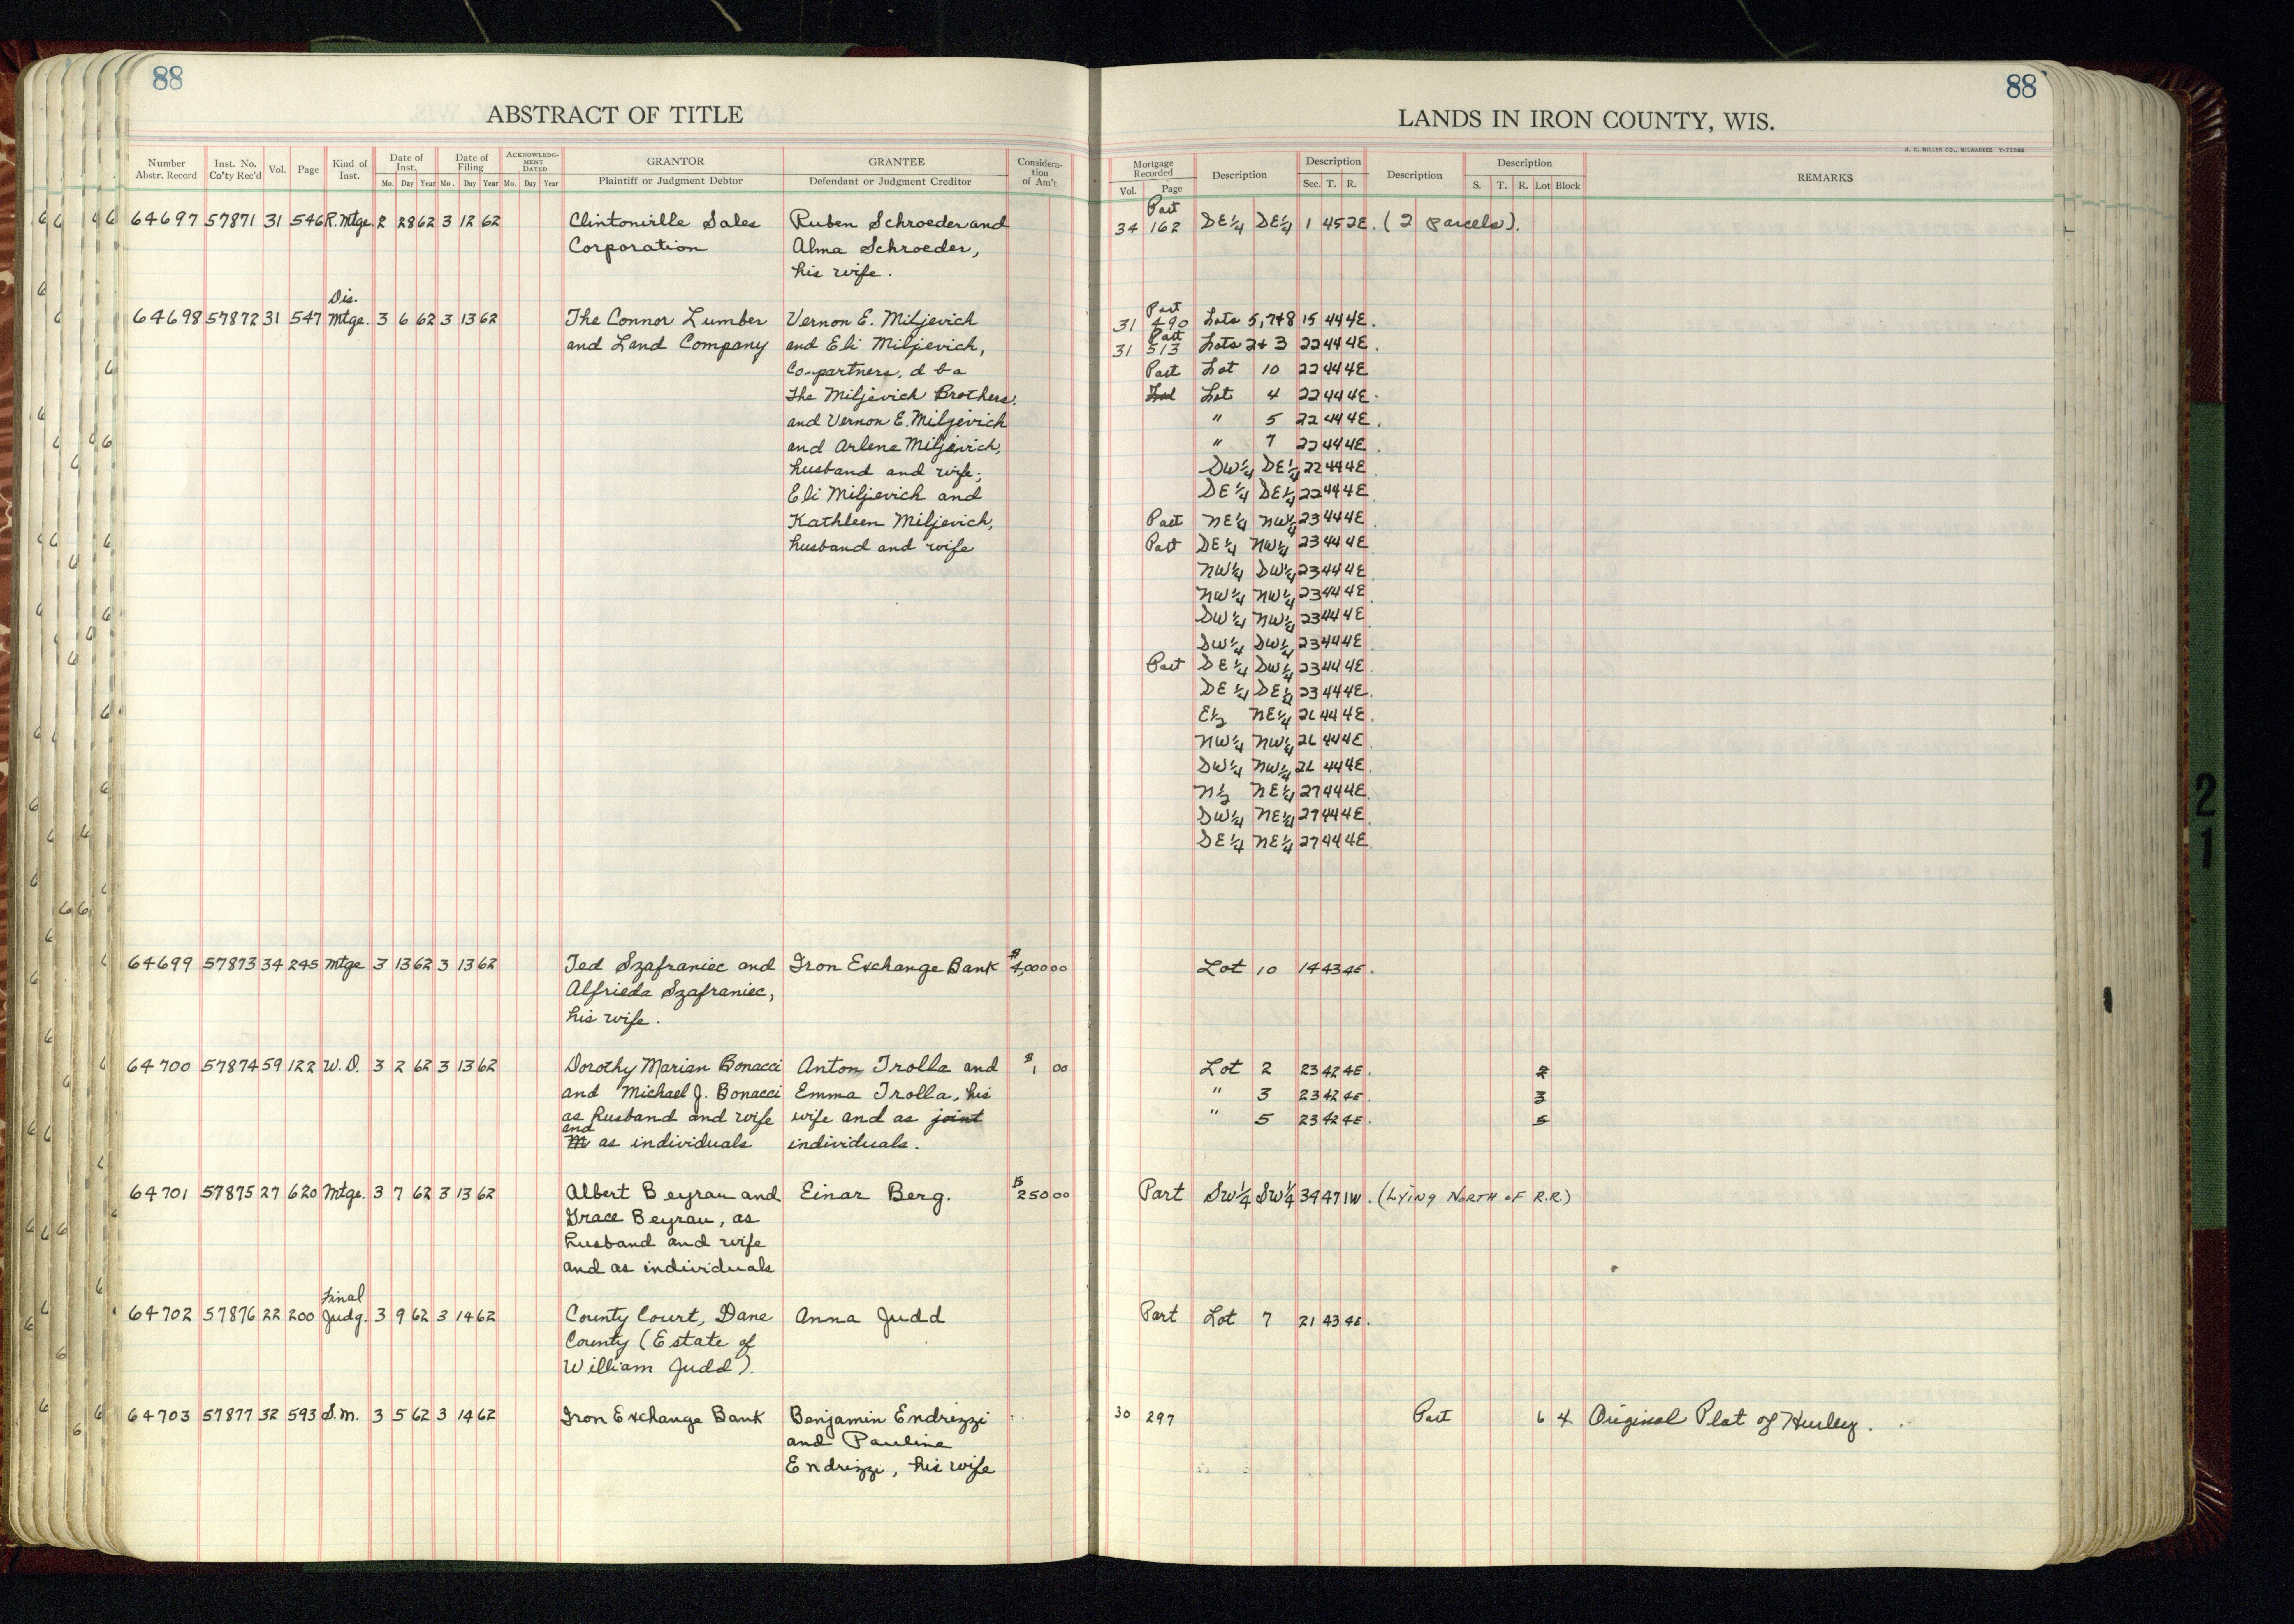 88
ABSTRACT OF TITLE
Number Abstr. Record Inst. No. Co'ty Rec'd Vol. Page Kind of Inst. Date of Inst. Mo. Day Year Date of Filing Mo. Day Year ACKNOWLEDGMENT DATED Mo. Day Year GRANTOR Plaintiff or Judgment Debtor GRANTEE Defendant or Judgment Creditor Consideration of Am't
64697 57871 31 546 R. Mtge. 2 28 62 3 12 62 Clintonville Sales Ruben Schroeder and
Corporation Alma Schroeder,
his wife.
Dis.
64698 57872 31 547 Mtge. 3 6 62 3 13 62 The Connor Lumber Vernon E. Miljevich
and Land Company and Eli Miljevich,
Co-partners, d b a
The Miljevich Brothers.
and Vernon E. Miljevich
and Arlene Miljevich,
husband and wife;
Eli Miljevich and
Kathleen Miljevich,
husband and wife
64699 57873 34 245 Mtge 3 13 62 3 13 62 Ted Szafraniec and Iron Exchange Bank $4,000 00
Alfrieda Szafraniec,
his wife.
64700 57874 59 122 W.D. 3 2 62 3 13 62 Dorothy Marian Bonacci Anton Trolla and $1 00
and Michael J. Bonacci Emma Trolla, his
as husband and wife wife and as joint
and
as individuals individuals.
64701 57875 27 620 Mtge. 3 7 62 3 13 62 Albert Beyrau and Einar Berg. $250 00
Grace Beyrau, as
husband and wife
and as individuals
Final
64702 57876 22 200 Judg. 3 9 62 3 14 62 County Court, Dane Anna Judd
County (Estate of
William Judd).
64703 57877 32 593 S.M. 3 5 62 3 14 62 Iron Exchange Bank Benjamin Endrizzi
and Pauline
Endrizzi, his wife
88
LANDS IN IRON COUNTY, WIS.
H. C. MILLER CO., MILWAUKEE
Mortgage Recorded Vol. Page Description Description Sec. T. R. Description Description S. T. R. Lot Block REMARKS
Part
34 162 SE¼ SE¼ 1 45 2E. (2 parcels).
Part
31 490 Lots 5,7&8 15 44 4E.
Part
31 513 Lots 2&3 22 44 4E.
Part Lot 10 22 44 4E
Lot 4 22 44 4E.
" 5 22 44 4E.
" 7 22 44 4E.
SW¼ SE¼ 22 44 4E
SE¼ SE¼ 22 44 4E.
Part NE¼ NW¼ 23 44 4E.
Part SE¼ NW¼ 23 44 4E.
NW¼ SW¼ 23 44 4E.
NW¼ NW¼ 23 44 4E.
SW¼ NW¼ 23 44 4E.
SW¼ SW¼ 23 44 4E.
Part SE¼ SW¼ 23 44 4E.
SE¼ SE¼ 23 44 4E.
E½ NE¼ 26 44 4E.
NW¼ NW¼ 26 44 4E.
SW¼ NW¼ 26 44 4E.
N½ NE¼ 27 44 4E.
SW¼ NE¼ 27 44 4E.
SE¼ NE¼ 27 44 4E.
Lot 10 14 43 4E.
Lot 2 23 42 4E. 2
" 3 23 42 4E. 3
" 5 23 42 4E. 5
Part SW¼ SW¼ 34 47 1W. (LYING NORTH OF R.R.)
Part Lot 7 21 43 4E.
30 297 Part 6 4 Original Plat of Hurley.
2
1